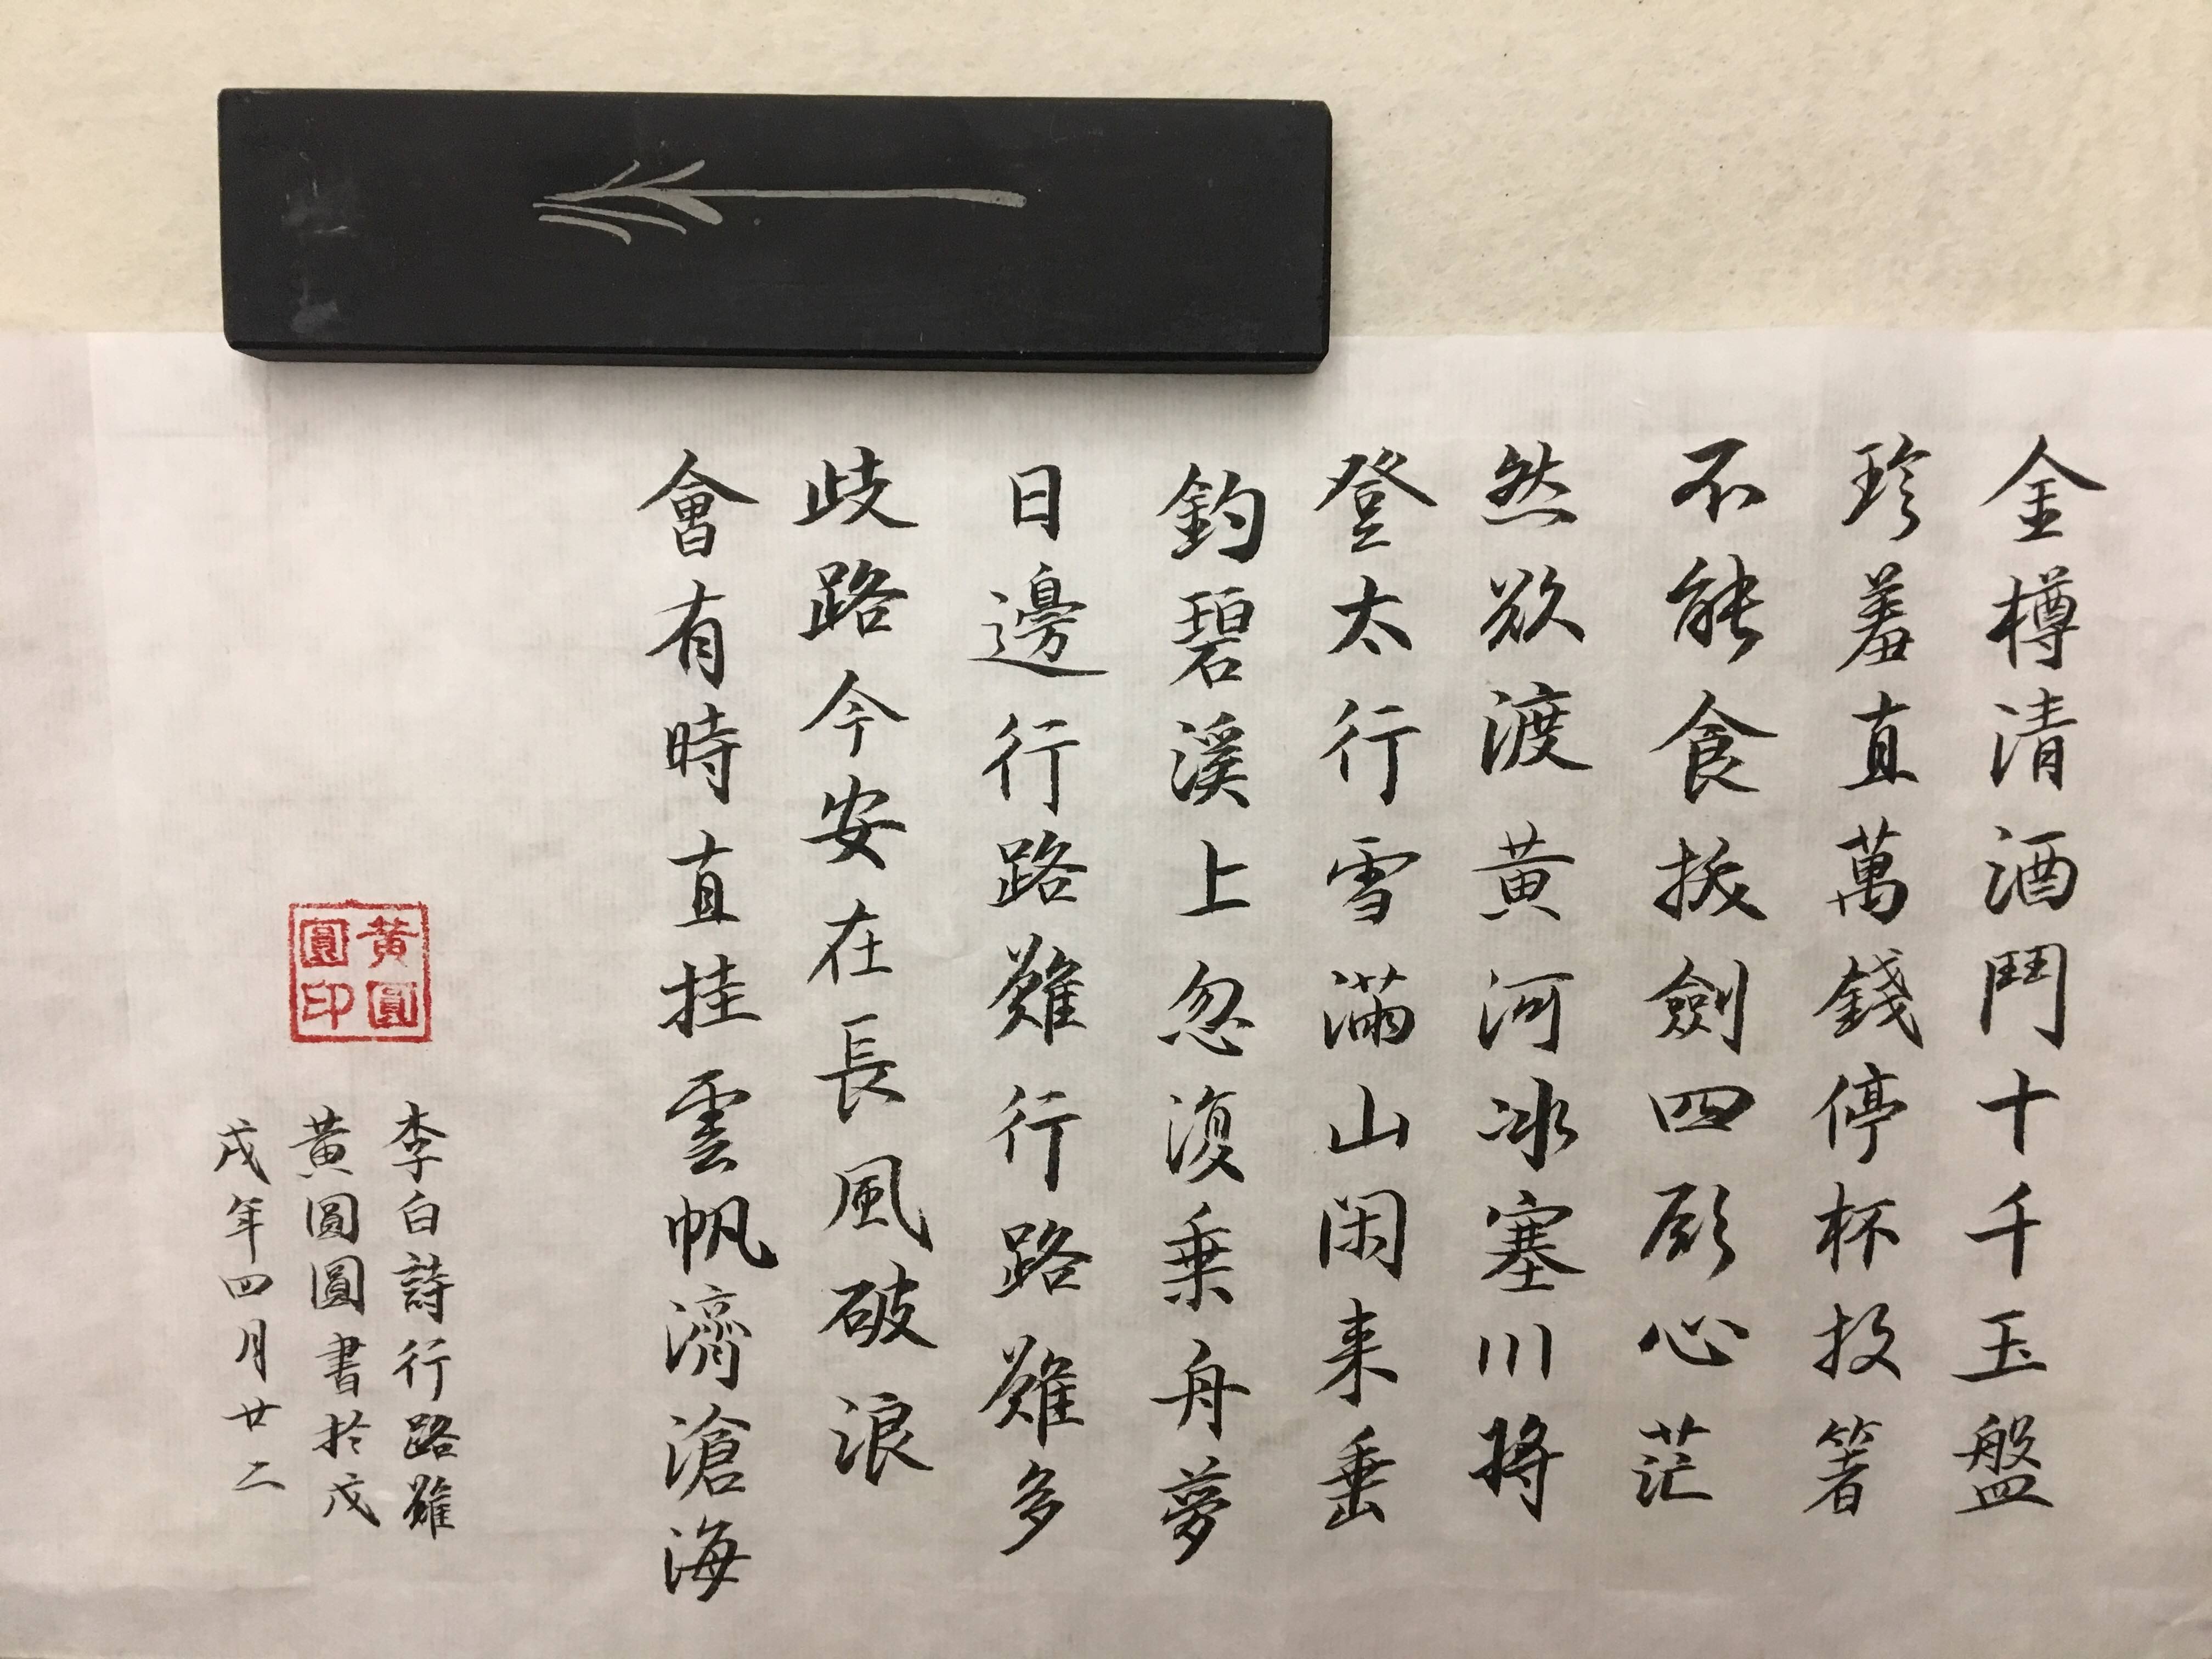 金樽清酒鬥十千玉盤
珍羞直萬錢停杯投箸
不能食拔劍四顧心茫
然欲渡黃河冰塞川將
登太行雪滿山閑来垂
釣碧溪上忽復乗舟夢
日邊行路難行路難多
歧路今安在長風破浪
會有時直挂雲帆濟滄海
李白詩行路難
黃圓圓書於戊
戌年四月廿二
黃圓
圓印